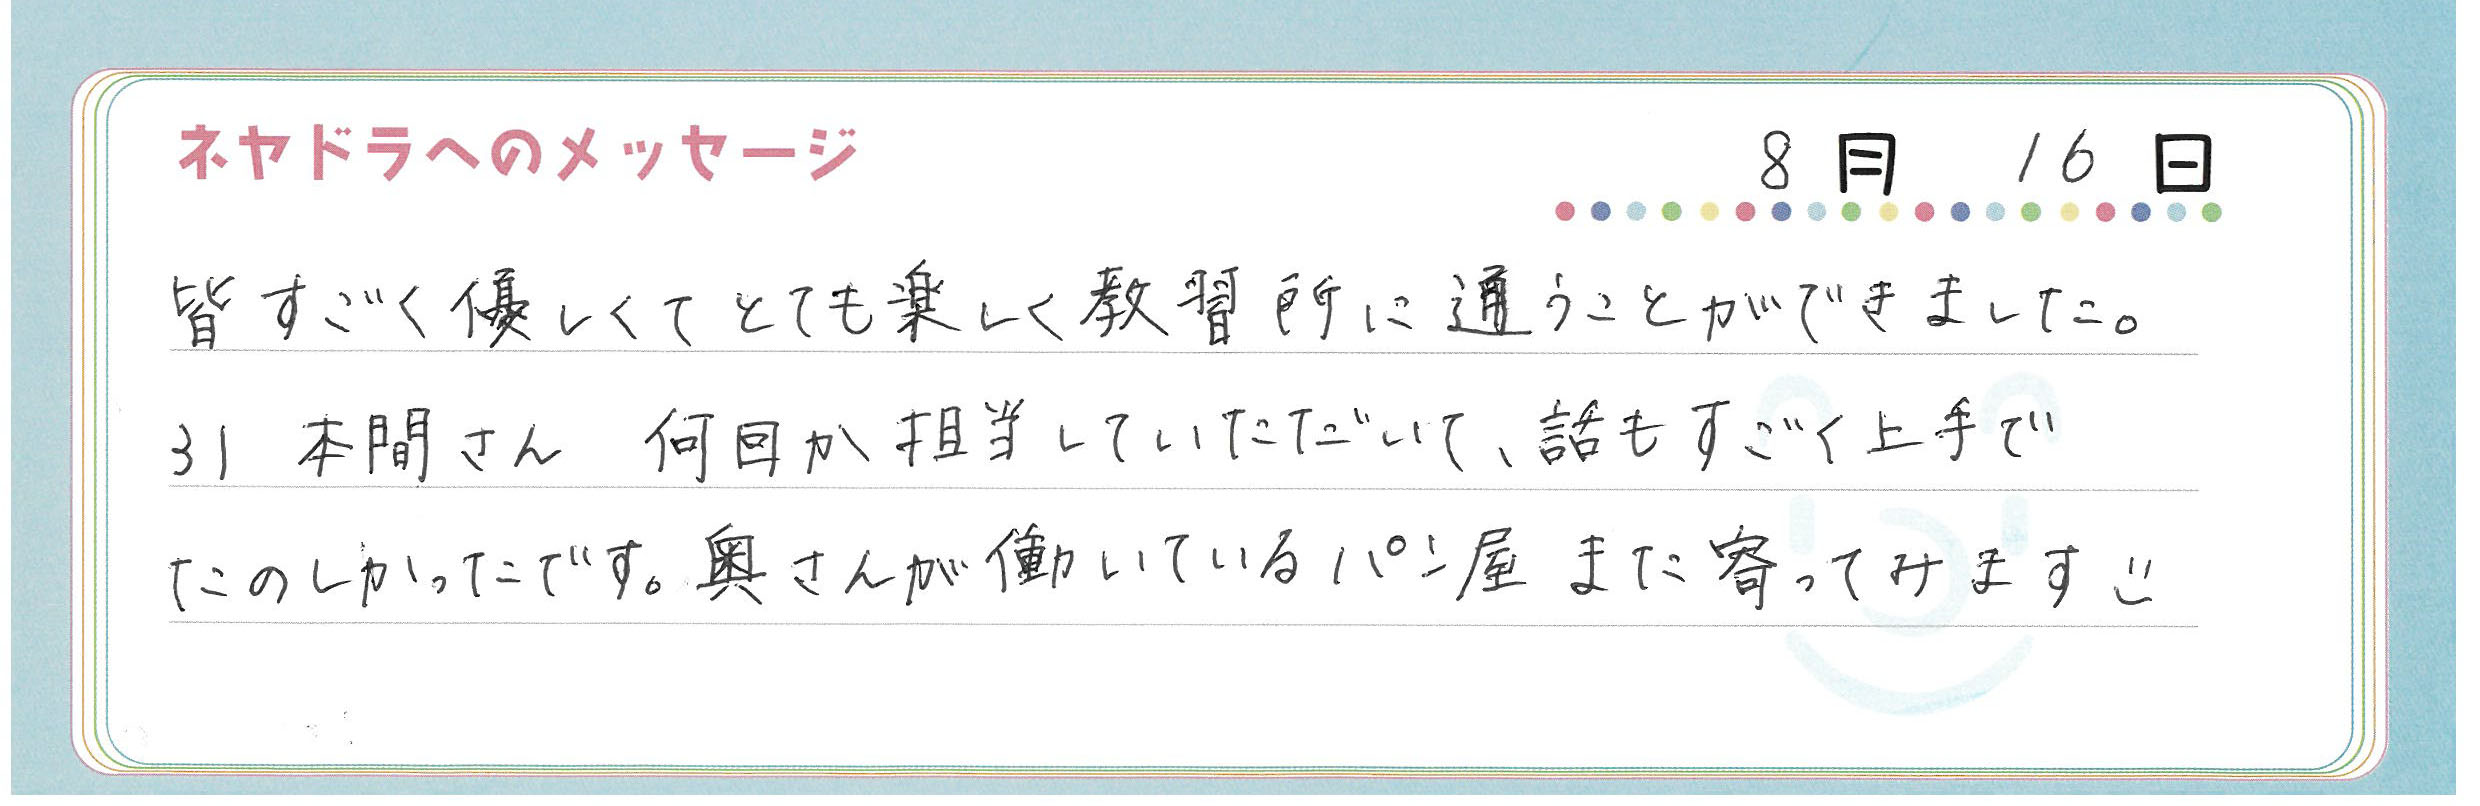 ネヤドラへのメッセージ
8月 16日
皆すごく優しくてとても楽しく教習所に通うことができました。
31 本間さん 何回か担当していただいて、話もすごく上手で
たのしかったです。奥さんが働いているパン屋 また寄ってみます